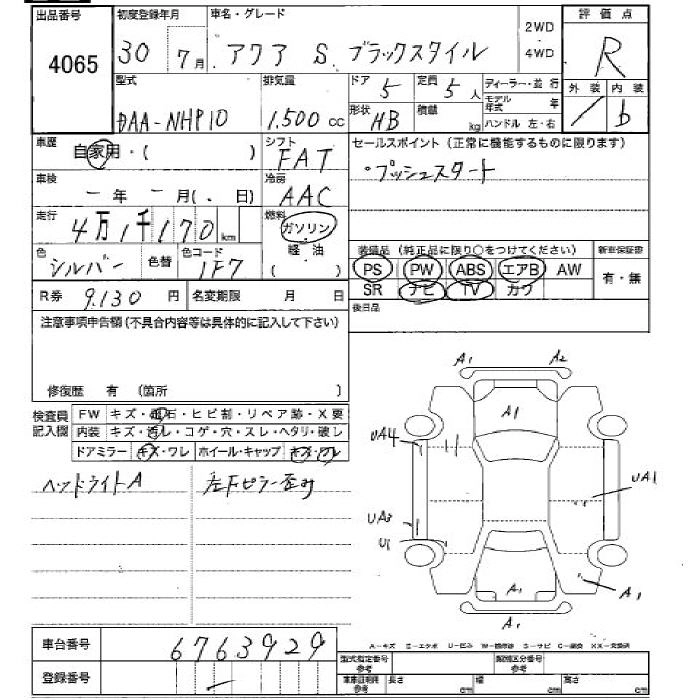 出品番号 初度登録年月 車名・グレード 2WD 4WD 評価点
4065 30 7月 アクア S ブラックスタイル R
型式 排気量 ドア 5 定員 5人 ディーラー・並行 外装 内装
モデル年式 年
DAA-NHP10 1.500cc 形状 HB 積載 kg ハンドル 左・右 / b
車歴 自家用・( ) シフト FAT セールスポイント (正常に機能するものに限ります)
車検 ー年 ー月(. 日) 冷房 AAC ・プッシュスタート
走行 4万1千170km 燃料 ガソリン 軽油
色 シルバー 色替 色コード 1F7 装備品 (純正品に限り○をつけてください) 新車保証書
PS PW ABS エアB AW 有・無
R券 9.130円 名変期限 月 日 SR ナビ TV カワ
注意事項申告欄 (不具合内容等は具体的に記入して下さい) 後日品
修復歴 有 (箇所 )
検査員記入欄 FW キズ・飛石・ヒビ割・リペア跡・X要
内装 キズ・汚レ・コゲ・穴・スレ・ヘタリ・破レ
ドアミラー キズ・ワレ ホイール・キャップ キズ・ワレ
ヘッドライトA 左Fピラー歪み
A1 A2
A1
UA4
UA1
UA3
U1
A1 A1
A1
A-キズ E-エクボ U-凹み W-補修跡 S-サビ C-腐食 XX-交換済
車台番号 6763929
登録番号 ー
型式指定番号 参考 類別区分番号 参考
車庫証明用 参考 長さ cm 幅 cm 高さ cm